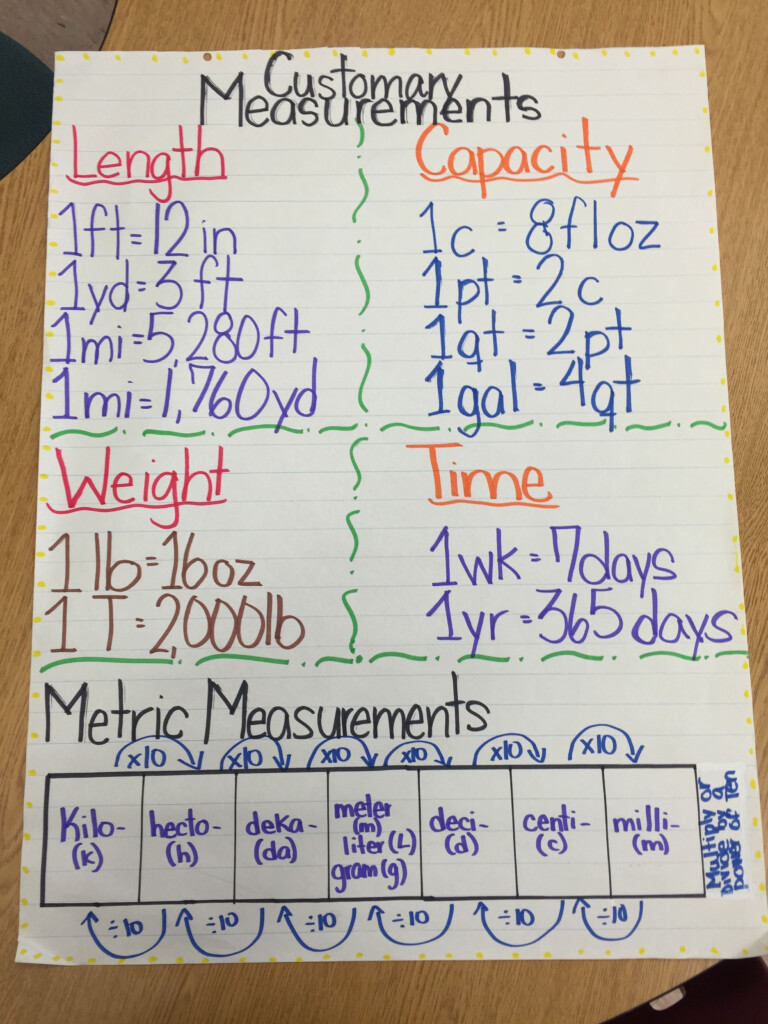 Customary
Measurements
Length
1ft=12in
1yd=3ft
1mi=5,280ft
1mi=1,760yd
Capacity
1c=8floz
1pt=2c
1qt=2pt
1gal=4qt
Weight
1lb=16oz
1T=2,000lb
Time
1wk=7days
1yr=365days
Metric Measurements
x10 x10 x10 x10 x10 x10
Kilo-
(k)
hecto-
(h)
deka-
(da)
meter
(m)
liter(L)
gram(g)
deci-
(d)
centi-
(c)
milli-
(m)
÷10 ÷10 ÷10 ÷10 ÷10 ÷10
Multiply or
Divide by a
power of Ten